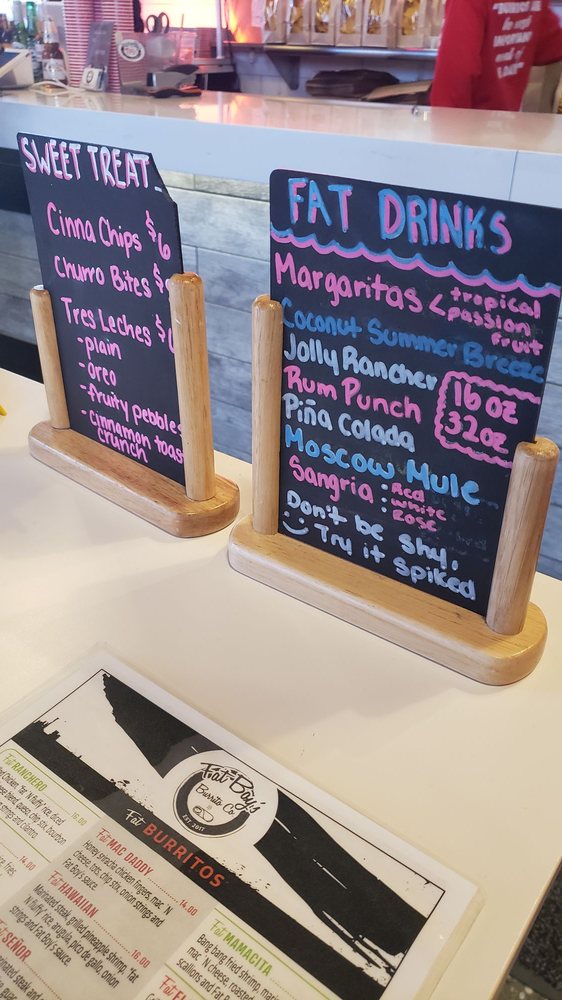 SWEET TREAT
Cinna Chips $6
Churro Bites $
Tres Leches $
-plain
-oreo
-fruity pebbles
-cinnamon toas
crunch
FAT DRINKS
Margaritas < tropical
passion
fruit
Coconut Summer Breeze
Jolly Rancher
Rum Punch
Piña Colada
Moscow Mule
Sangria : Red
White
Rose
16 oz
32oz
Don't be shy,
Try it spiked
Fat Boy's
Burrito Co
EST. 2017
Fat BURRITOS
Fat RANCHERO
16.00
14.00
Fat MAC DADDY 14.00
Honey sriracha chicken fingers, mac 'N
cheese, toms, chip stix, onion strings and
Fat Boy's sauce.
Fat HAWAIIAN 16.00
Marinated steak, grilled pineapple shrimp, "fat
'N fluffy" rice, arugula, pico de gallo, onion
strings and Fat Boy's sauce.
Fat SEÑOR
Fat MAMACITA
Bang bang fried shrimp,
mac 'N Cheese, roasted
scallions and Fat